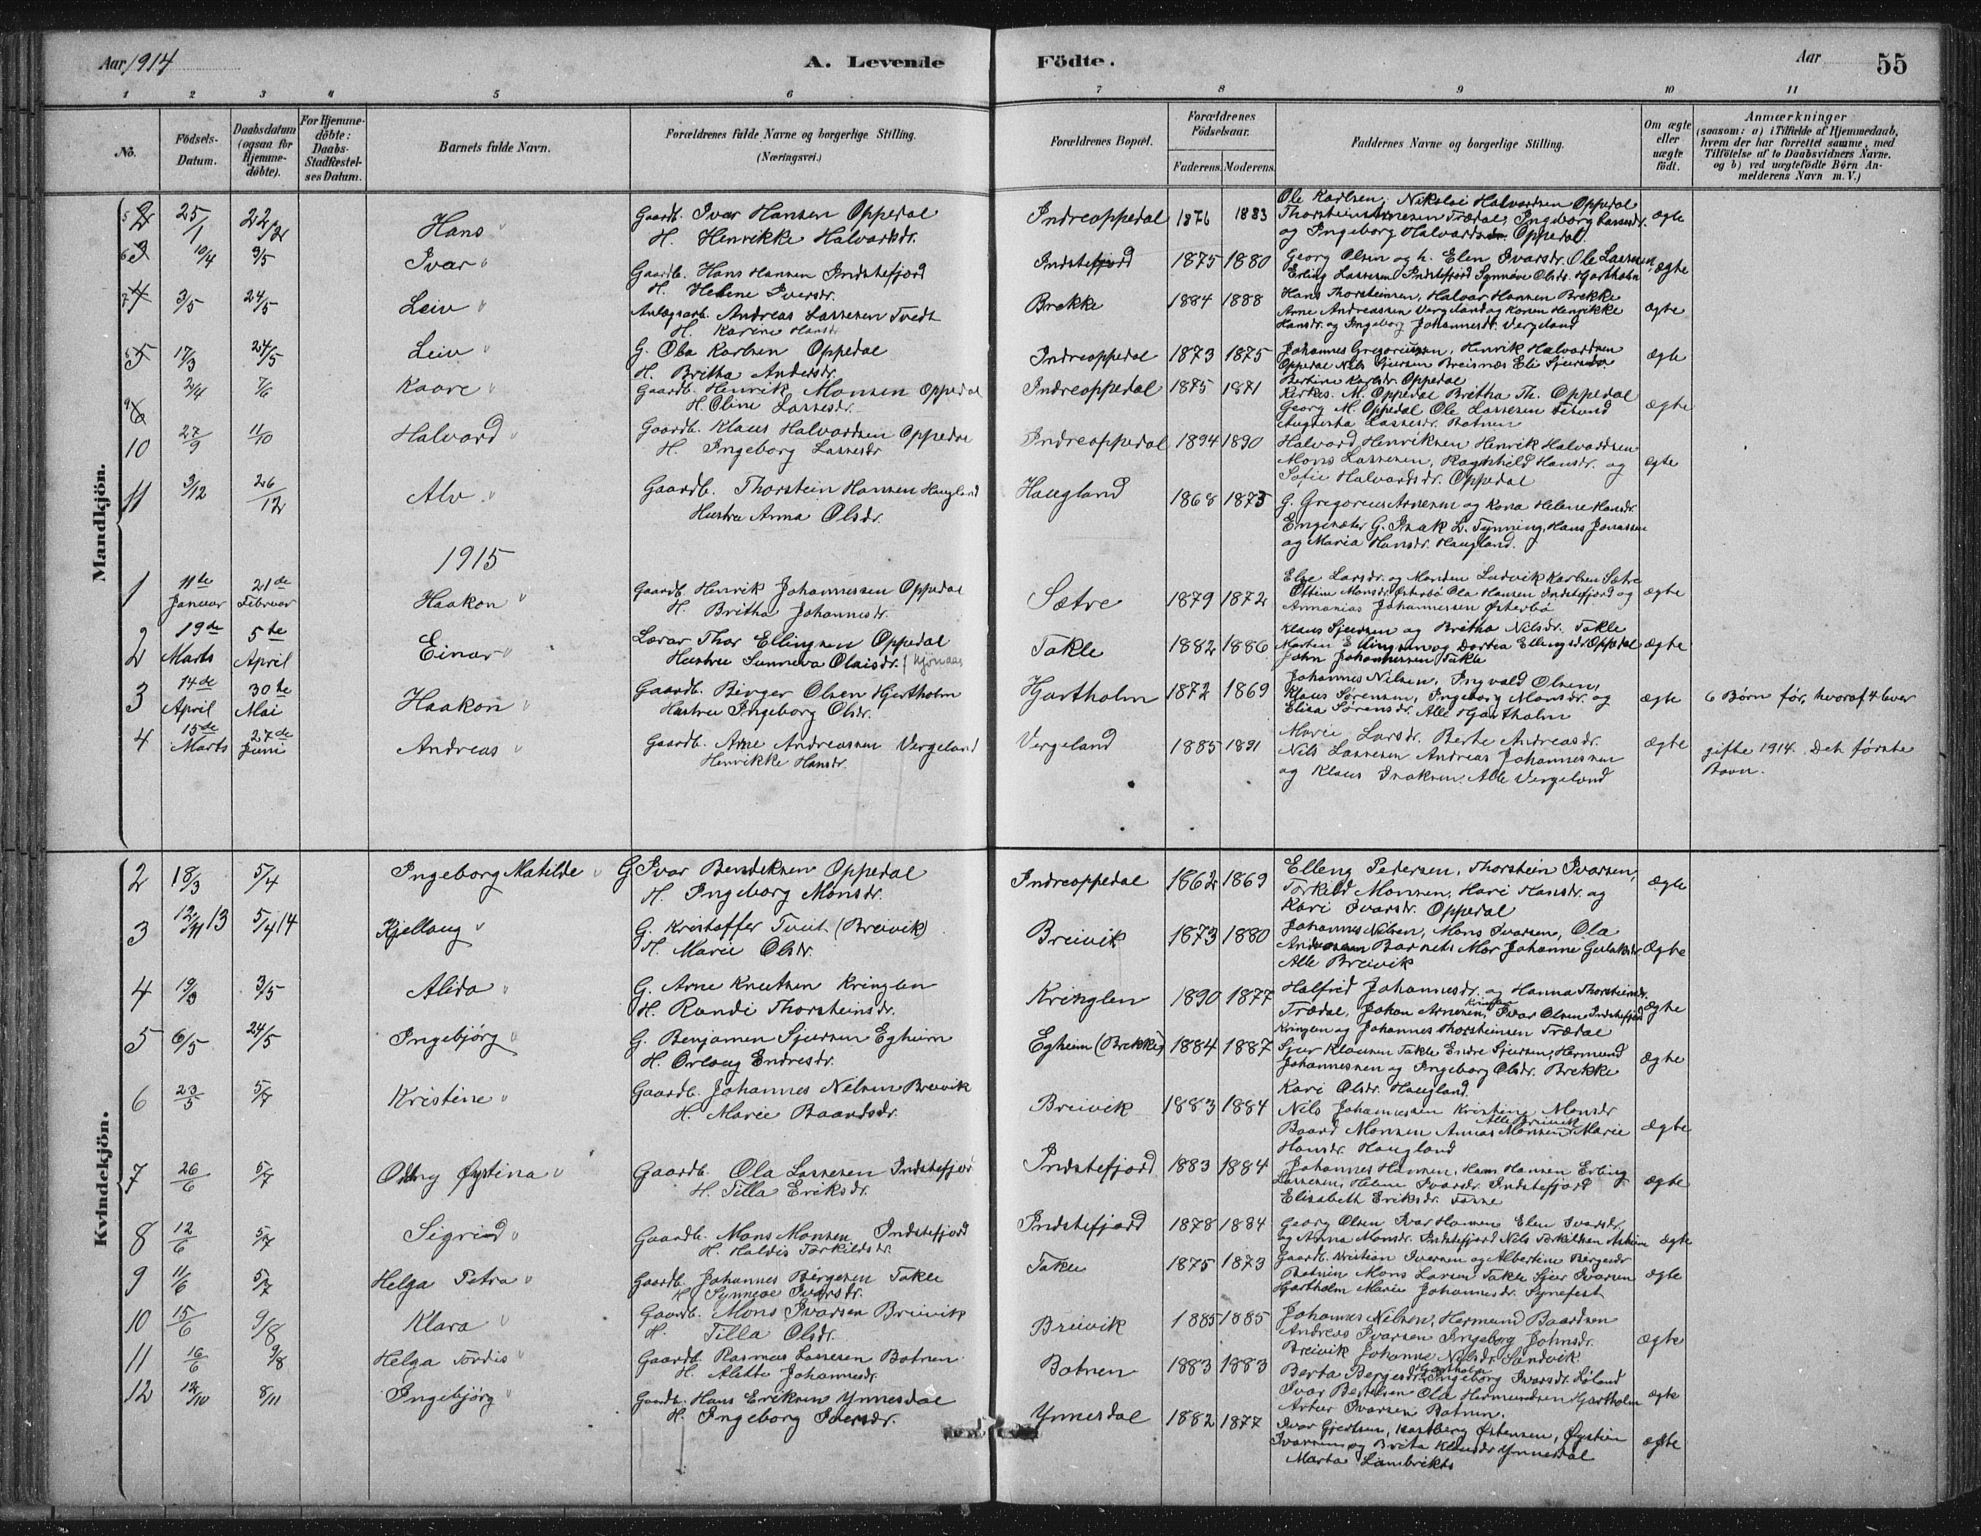 Aar 1914
A. Levende
Födte.
Aar
55
1 2 3 4 5 6 7 8 9 10 11
No.
Födsels-Datum.
Daabsdatum (ogsaa for Hjemme-döbte).
For Hjemme-döbte: Daabs-Stadfæstel-ses Datum.
Barnets fulde Navn.
Forældrenes fulde Navne og borgerlige Stilling. (Næringsvei.)
Forældrenes Bopæl.
Forældrenes Födselsaar.
Faderens. Moderens.
Faddernes Navne og borgerlige Stilling.
Om ægte eller uægte födt.
Anmærkninger (saasom: a) i Tilfælde af Hjemmedaab, hvem der har forrettet samme, med Tilföielse af to Daabsvidners Navne. og b) ved uægtefödte Börn An-melderens Navn m. V.)
Mandkjön.
5 25/1 22/2 Hans " Gaardb. Ivar Hansen Oppedal
H. Henrikke Halvardsdr. Indreoppedal 1876 1883 Ole Karlsen, Nikolai Halvardsen Oppedal
Thorstein Arnesen Trædal, Ingeborg Lassesdr.
og Ingeborg Halvardsdr. Oppedal. ægte
6 10/4 3/5 Ivar " Gaardb. Hans Hansen Indstefjord
H. Helene Iversdr. Indstefjord 1875 1880 Georg Olsen og h. Elen Ivarsdr. Ole Lassesen,
Erling Lassesen Indstefjord Synnöve Olsdr. Hjartholm ægte
7 3/5 24/5 Leiv " Anlægsarb. Andreas Lassesen Tvedt
H. Karine Hansdr. Brekke 1884 1888 Hans Thorsteinsen, Halvar Hansen Brekke
Arne Andreassen Vergeland og Konen Henrikke
Hansdr. og Ingeborg Johannesdr. Vergeland ægte
17/3 24/5 Leiv " G. Ola Karlsen Oppedal
H. Britha Andersdr. Indreoppedal 1873 1875 Johannes Gregoriussen, Henrik Halvardsen
Oppedal Nils Sjursen Breisnæs Eli Sjursdr.
Bertine Karlsdr. Oppedal ægte
9 2/4 7/6 Kaare " Gaardb. Henrik Monsen Oppedal
H. Oline Lassesdr. Indreoppedal 1875 1871 M. Oppedal Britha Th. Oppedal
Georg M. Oppedal Ole Lassesen
Augusta Lassesdr. Botnen ægte
10 27/9 11/10 Halvard " Gaardb. Klaus Halvardsen Oppedal
H. Ingeborg Lassesdr. Indreoppedal 1894 1890 Halvard Henriksen Henrik Halvardsen
Mons Lassesen, Ragnhild Hansdr. og
Sofie Halvardsdr. Oppedal ægte
11 3/12 26/12 Alv " Gaardb. Thorstein Hansen Haugland
Hustru Anna Olsdr. Haugland 1868 1873 G. Gregorius Arnesen og Kona Helene Hansdr.
Engesæter G. Isak L. Tynning, Hans Jonassen
og Maria Hansdr. Haugland.
1915
1 11te Januar 21de Februar Haakon " Gaardb. Henrik Johannessen Oppedal
H. Britha Johannesdr. Sætre 1879 1872 Else Larsdr. og Manden Ludvik Karlsen Sætre
Ottine Monsdr. Østerbö Ola Hansen Indstefjord og
Armanias Johannessen Østerbö ægte
2 19de Marts 5te April Einar " Lærar Thor Ellingsen Oppedal
Hustru Sunneva Olaisdr. Takle 1882 1886 Klaus Sjursen og Britha Nilsdr. Takle
Martin Ellingsen og Dortea Ellingsdr. Oppedal
John Johannessen Takle ægte
3 14de April 30te Mai Haakon " Gaardb. Birger Olsen Hjartholm
Hustru Ingeborg Olsdr. Hjartholm 1872 1869 Johannes Nilsen, Ingvald Olsen,
Klaus Sørensen, Ingeborg Monsdr. og
Elisa Sørensdr. Alle Hjartholm ægte 6 Børn før, hvoraf 4 lever
4 15de Marts 27de Juni Andreas " Gaardb. Arne Andreassen Vergeland
Henrikke Hansdr. Vergeland 1885 1891 Marie Larsdr. Berte Andreasdr.
Nils Lassesen Andreas Johannessen
og Klaus Isaksen. Alle Vergeland ægte gifte 1914. Det første
Barn.
Kvindekjön.
2 18/3 5/4 Ingeborg Matilde " G. Ivar Bendiksen Oppedal
H. Ingeborg Monsdr. Indreoppedal 1862 1869 Elleng Pedersen, Thorstein Ivarsen,
Torkild Monsen, Kari Hansdr. og
Kari Ivarsdr. Oppedal ægte
3 12/11 13 5/4 14 Kjellaug " G. Kristoffer Tveit (Breivik)
H. Marie Olsdr. Breivik 1873 1880 Johannes Nilsen, Mons Ivarsen, Ola
Andersen Barnets Mor Johanne Gulaksdr.
Alle Breivik ægte
4 19/3 3/5 Alida " G. Arne Knutsen Kringlen
H. Randi Thorsteinsdr. Kringlen 1890 1877 Halfrid Johannesdr. og Hanna Thorsteinsdr.
Trædal, Johan Arnesen, Ivar Olsen Indstefjord
Kringlen og Johannes Thorsteinsen Trædal ægte
5 6/5 24/5 Ingebjørg " G. Benjamen Sjursen Egheim
H. Orlaug Endresdr. Egheim (Brekke) 1884 1887 Sjur Klausen Takle Endre Sjursen, Hermund
Johannessen og Ingeborg Olsdr. Brekke
Kari Olsdr. Haugland ægte
6 23/5 5/7 Kristine " Gaardb. Johannes Nilsen Breivik
H. Marie Baardsdr. Breivik 1883 1884 Nils Johannessen Kristine Monsdr
Baard Monsen Annas Monsen Alle Breivik Marie
Hansdr. Haugland ægte
7 26/6 5/7 Odny Øystina " Gaardb. Ola Lassesen Indstefjord
H. Tilla Eriksdr. Indstefjord 1883 1884 Johannes Hansen, Hans Hansen Erling
Lassesen, Helene Ivarsdr. Indstefjord
Elisabeth Eriksdr. ægte
8 12/6 5/7 Sigrid " Gaardb. Mons Monsen Indstefjord
H. Haldis Torkildsdr. Indstefjord 1878 1884 Georg Olsen Ivar Hansen Elen Ivarsdr.
og Anna Monsdr. Indstefjord Nils Torkildsen ægte
9 11/6 5/7 Helga Petra " Gaardb. Johannes Børgesen Takle
H. Synneve Ivarsdr. Takle 1875 1873 Gaardb. Kristian Iversen og Albertine Børgesdr
Botnen Mons Larsen Takle Sjur Ivarsen
Hjartholm Marie Johannesdr. Synefest ægte
10 15/6 9/8 Klara " Gaardb. Mons Ivarsen Breivik
H. Tilla Olsdr. Breivik 1885 1885 Johannes Nilsen, Hermund Baardsen
Andreas Ivarsen Ingeborg Johnsdr.
Breivik Johanne Nilsdr. Sandvik. ægte
11 16/6 9/8 Helga Tordis " Gaardb. Rasmus Lassesen Botnen
H. Alette Johannesdr. Botnen 1883 1883 Berta Børgesdr. Hjartholm Ingeborg Ivarsdr.
Ivar Bertelsen Ola Hermundsen Hjartholm
Artur Ivarsen Botnen. ægte
12 12/10 8/11 Ingebjørg " Gaardb. Hans Eriksen Ynnesdal
H. Ingeborg Iversdr. Ynnesdal 1882 1877 Ivar Gjertsen, Østensen, Øystein
Ivarsen og Brita Klausdr Ynnesdal
Marta Lambrikts ægte